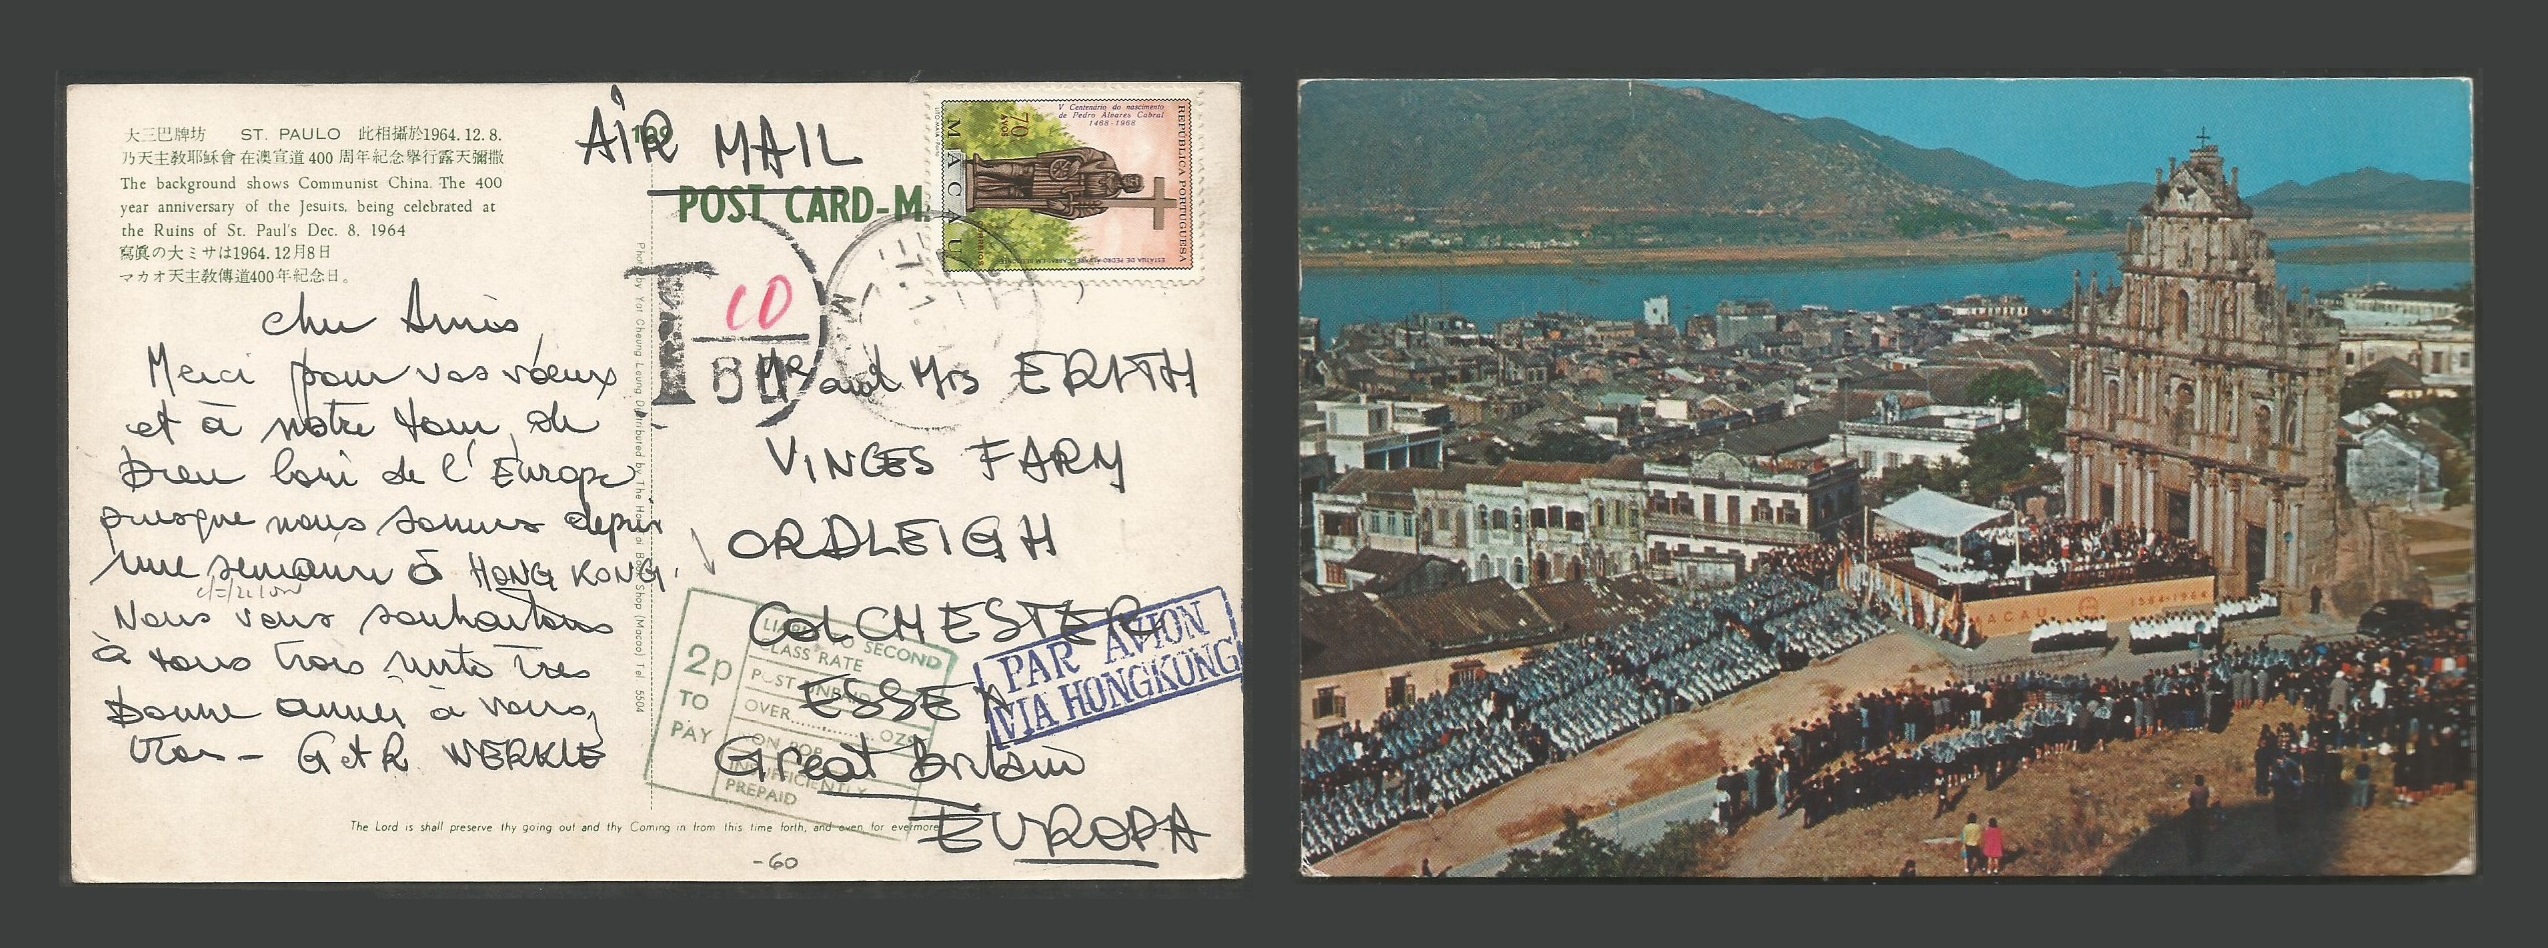 大三巴牌坊 ST. PAULO 此相攝於1964.12.8.
乃天主敎耶穌會在澳宣道400周年紀念舉行露天彌撒
The background shows Communist China. The 400
year anniversary of the Jesuits, being celebrated at
the Ruins of St. Paul's Dec. 8, 1964
寫眞の大ミサは1964.12月8日
マカオ天主敎傳道400年紀念日。
AIR MAIL
POST CARD-M
V Centenário do nascimento
de Pedro Álvares Cabral
1468-1968
REPÚBLICA PORTUGUESA
70 AVOS
MACAU
CORREIOS
T
10
80
cher Amis,
Merci pour vos voeux
et à notre tour, de
bien loin de l'Europe
puisque nous sommes depuis
une semaine à HONG KONG.
Nous vous souhaitons
à tous trois une très
bonne année à vous
trois - G et R. WERKLE
Photo by Yat Cheung Leung Distributed by The Hoi Book Shop (Macao) Tel. 5504
Mr and Mrs ERITH
VINCES FARM
ORDLEIGH
COLCHESTER
ESSEX
Great Britain
EUROPA
2p
TO
PAY
LIABLE TO SECOND
CLASS RATE
POST UNPAID
OVER.............OZS
INSUFFICIENTLY
PREPAID
PAR AVION
VIA HONGKONG
The Lord is shall preserve thy going out and thy Coming in from this time forth, and even for evermore
-60
MACAU 1564-1964